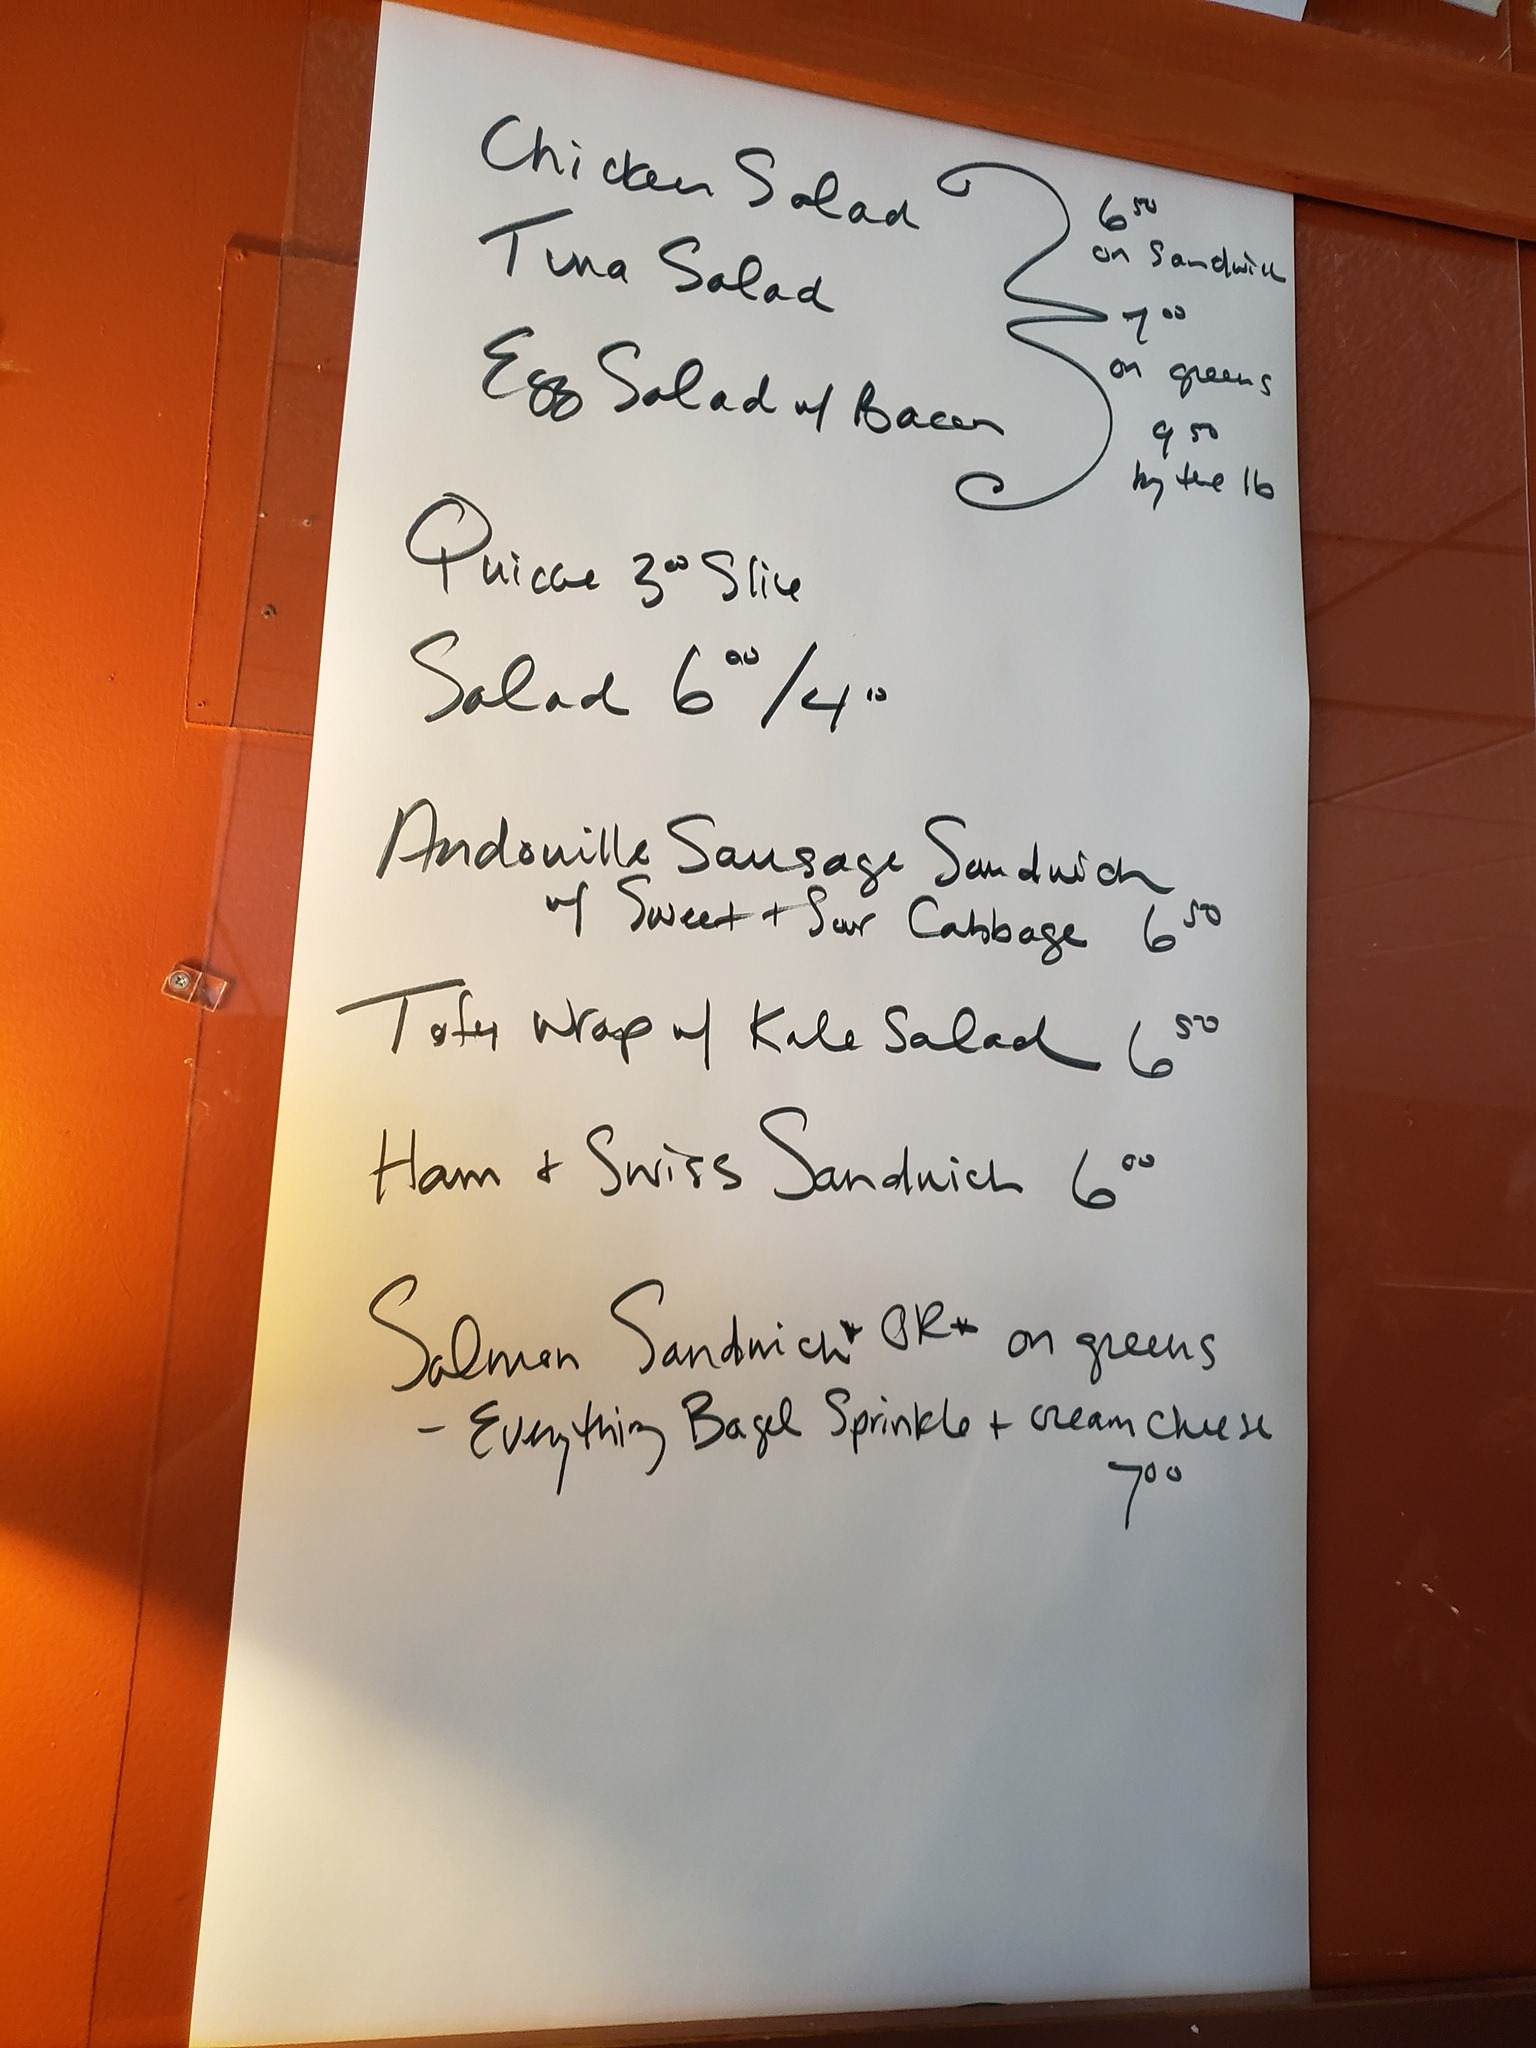 Chicken Salad
Tuna Salad
Egg Salad w/ Bacon
6 50
on Sandwich
7 00
on greens
9 50
by the lb
Quiche 3 00 Slice
Salad 6 00 / 4 00
Andouille Sausage Sandwich
w/ Sweet + Sour Cabbage 6 50
Tofu Wrap w/ Kale Salad 6 50
Ham + Swiss Sandwich 6 00
Salmon Sandwich* OR* on greens
- Everything Bagel Sprinkle + cream cheese
7 00